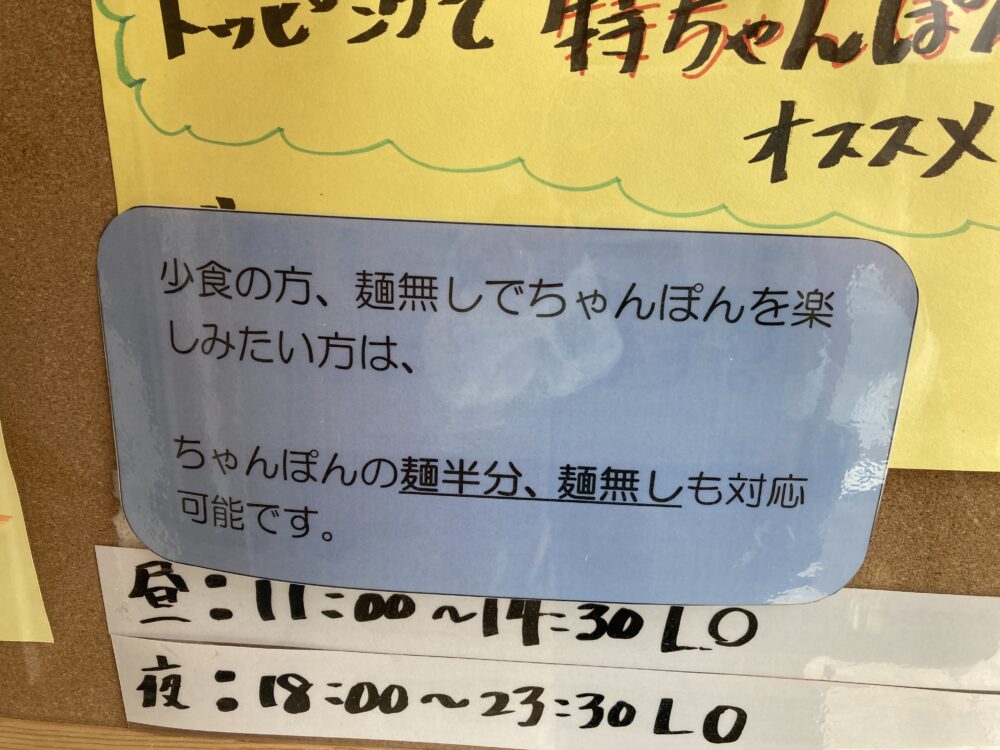 トッピングで 特ちゃんぽん
オススメ
少食の方、麺無しでちゃんぽんを楽
しみたい方は、
ちゃんぽんの麺半分、麺無しも対応
可能です。
昼:11:00~14:30 LO
夜:18:00~23:30 LO